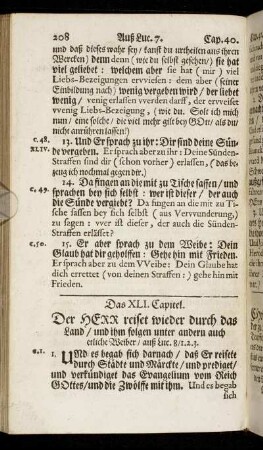 208 Auß Luc. 7. Cap. 40.
und daß dieses wahr sey / kanst du urtheilen aus ihren
Wercken) denn (wie du selbst gesehen / sie hat
viel geliebet : welchem aber sie hat (mir) viel
Liebs-Bezeigungen ervviesen : dem aber (seiner
Einbildung nach) wenig vergeben wird / der liebet
wenig / venig erlassen vverden darff, der ervveiset
vvenig Liebs-Bezeigung, (wie du. Solt ich mich
nun / eine solche / die viel mehr gilt bey GOtt / als du /
nicht anrühren lassen!)
c. 48. 13. Und Er sprach zu ihr: Dir sind deine Sün-
XLIV. de vergeben. Er sprach aber zu ihr : Deine Sünden-
Straffen sind dir (schon vorher) erlassen, (das be-
zeug ich nochmal gegen dir.)
c. 49. 14. Da fingen an die mit zu Tische saffen / und
sprachen bey sich selbst : wer ist dieser / der auch
die Sünde vergiebt? Da fingen an die mit zu Ti-
sche sassen bey sich selbst (aus Vervvunderung,)
zu sagen : vver ist dieser, der auch die Sünden-
Straffen erlässet?
c. 50. 15. Er aber sprach zu dem Weibe : Dein
Glaub hat dir geholffen : Gehe hin mit Frieden.
Er sprach aber zu dem VVeibe : Dein Glaube hat
dich errettet (von deinen Straffen :) gehe hin mit
Frieden.
Das XLI. Capitel.
Der HERR reiset wieder durch das
Land / und ihm folgen unter andern auch
etliche Weiber / auß Luc. 8/1.2.3.
c. 1. 1. UNd es begab sich darnach / daß Er reisete
durch Städte und Märckte / und prediget /
und verkündiget das Evangelium vom Reich
GOttes / und die Zwölffe mit ihm. Und es begab
sich